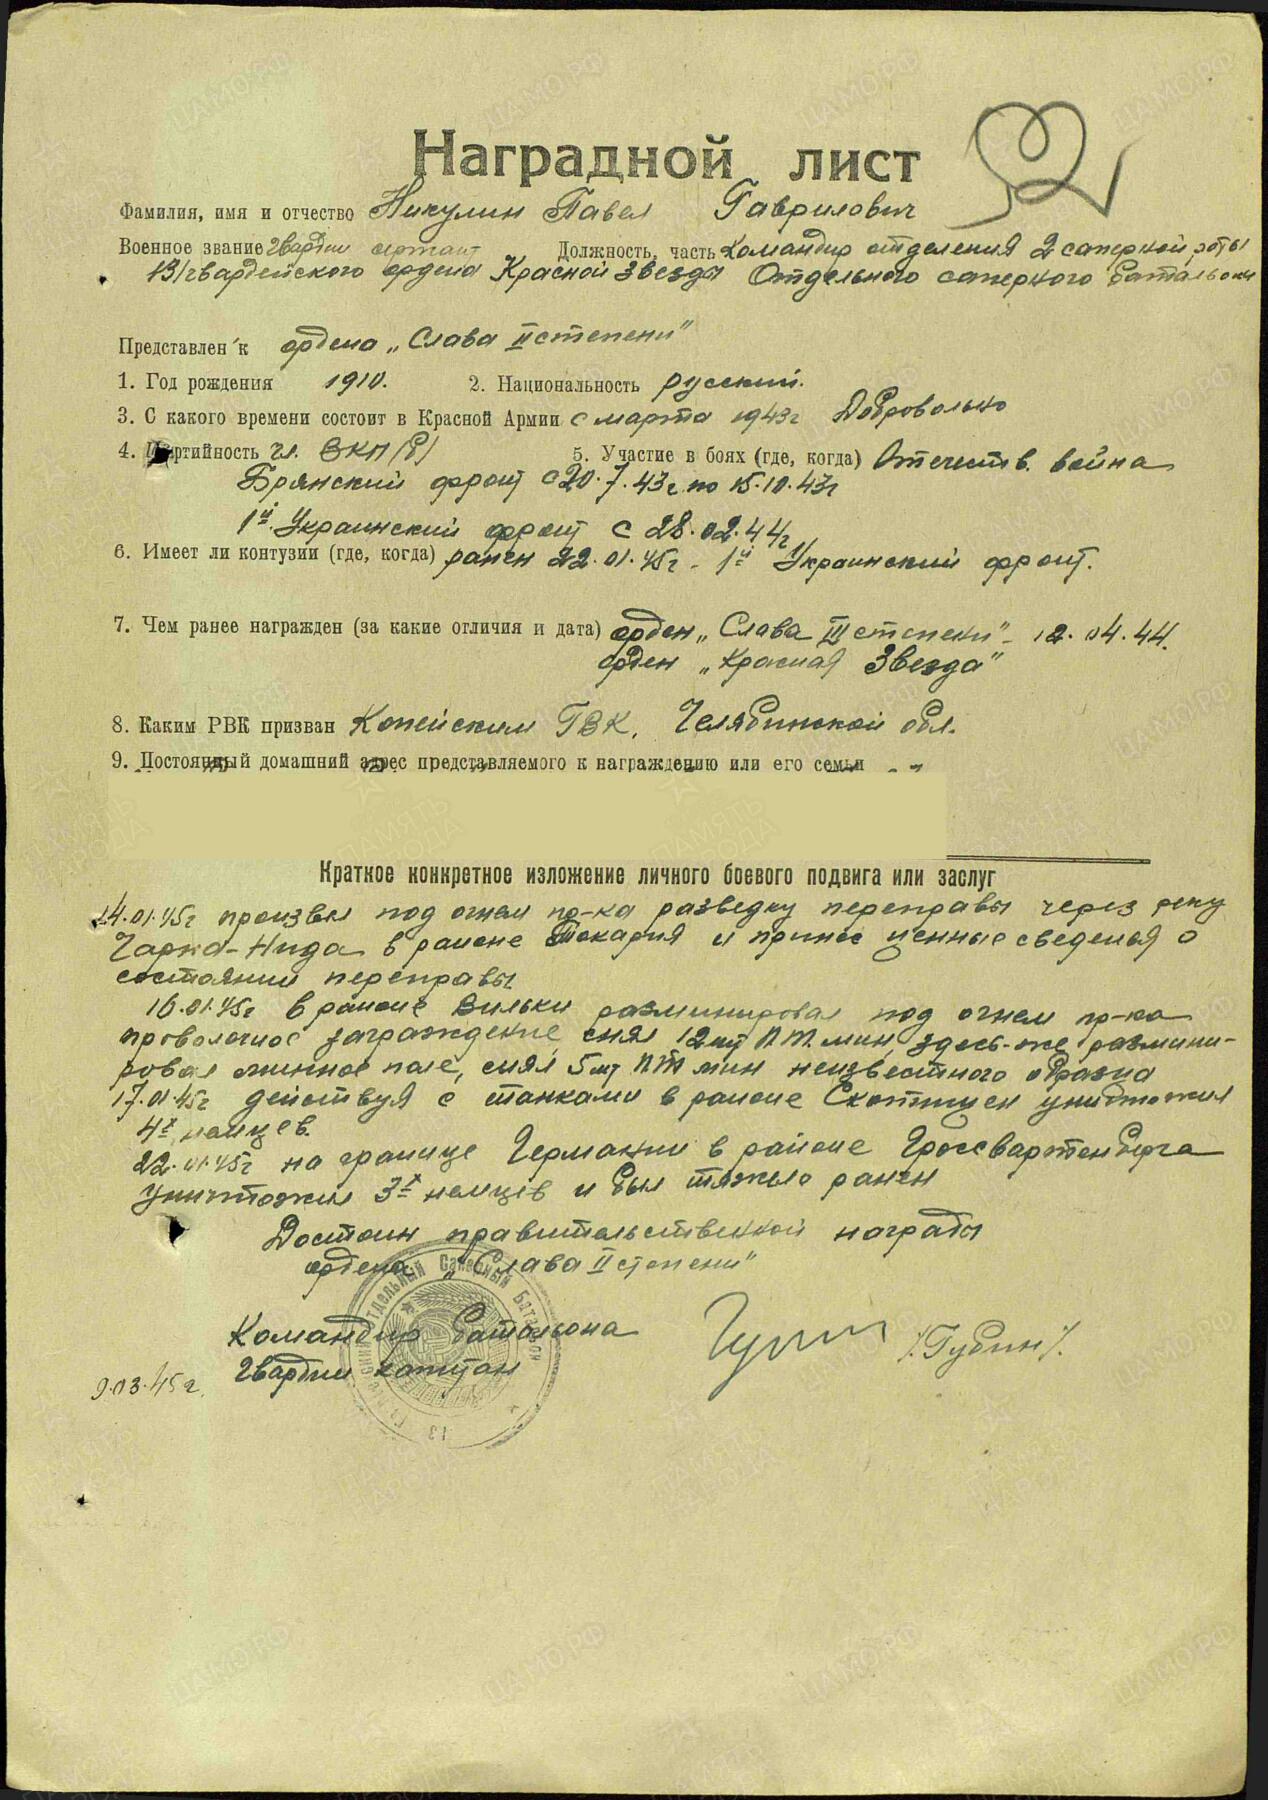 Наградной лист
Фамилия, имя и отчество Никулин Павел Гаврилович
Военное звание гвардии сержант Должность, часть Командир отделения 2 саперной роты
13 гвардейского ордена Красной Звезды Отдельного саперного батальона
Представлен к ордена „Слава II степени"
1. Год рождения 1910. 2. Национальность русский.
3. С какого времени состоит в Красной Армии с марта 1943г Добровольно
4. Партийность чл. ВКП(б) 5. Участие в боях (где, когда) Отечеств. война
Брянский фронт с 20.7.43г по 15.10.43г
1й Украинский фронт с 28.02.44г
6. Имеет ли контузии (где, когда) ранен 22.01.45г - 1й Украинский фронт.
7. Чем ранее награжден (за какие отличия и дата) орден „Слава III степени" - 12.04.44.
орден „Красная Звезда"
8. Каким РВК призван Копейским ГВК, Челябинской обл.
9. Постоянный домашний адрес представляемого к награждению или его семьи
Краткое конкретное изложение личного боевого подвига или заслуг
14.01.45г произвел под огнем пр-ка разведку переправы через реку
Чарна-Нида в районе Токарня и принес ценные сведенья о
состоянии переправы
16.01.45г в районе Вильки разминировал под огнем пр-ка
проволочное заграждение, снял 12 шт П.Т. мин, здесь-же размини-
ровал минное поле, снял 5 шт ПТ мин неизвестного образца
17.01.45г действуя с танками в районе уничтожил
4х немцев.
22.01.45г на границе Германии в районе Гроссвартенберга
уничтожил 3х немцев и был тяжело ранен
Достоин правительственной награды
ордена „Слава II степени"
Командир батальона
Гвардии капитан /Губин/.
9.03.45г.
Отдельный Саперный Батальон
13